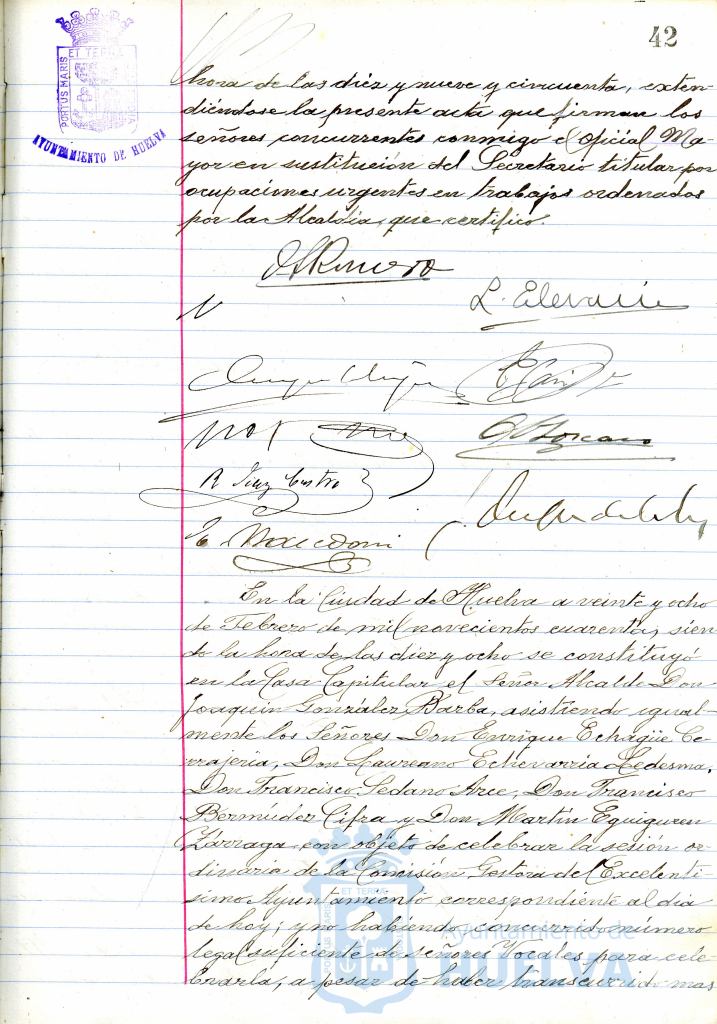 42
ET TERRÆ
PORTUS MARIS
CUSTODIA
AYUNTAMIENTO DE HUELVA
hora de las diez y nueve y cincuenta, exten-
diéndose la presente acta que firman los
señores concurrentes conmigo el Oficial Ma-
yor en sustitución del Secretario titular por
ocupaciones urgentes en trabajos ordenados
por la Alcaldía, que certifico.
R. Diaz Castro
En la Ciudad de Huelva a veinte y ocho
de Febrero de mil novecientos cuarenta, sien-
do la hora de las diez y ocho se constituyó
en la Casa Capitular el Señor Alcalde Don
Joaquin González Barba, asistiendo igual-
mente los Señores Don Enrique Echagüe Ce-
rrajeria, Don Laureano Echevarria Ledesma,
Don Francisco Sedano Arce, Don Francisco
Bermúdez Cifra y Don Martin Eguiguren
Zárraga, con objeto de celebrar la sesión or-
dinaria de la Comisión Gestora del Excelentí-
simo Ayuntamiento correspondiente al dia
de hoy; y no habiendo concurrido número
legal suficiente de señores Vocales para cele-
brarla, a pesar de haber transcurrido mas
ET TERRÆ
PORTUS MARIS
Ayuntamiento de
HUELVA